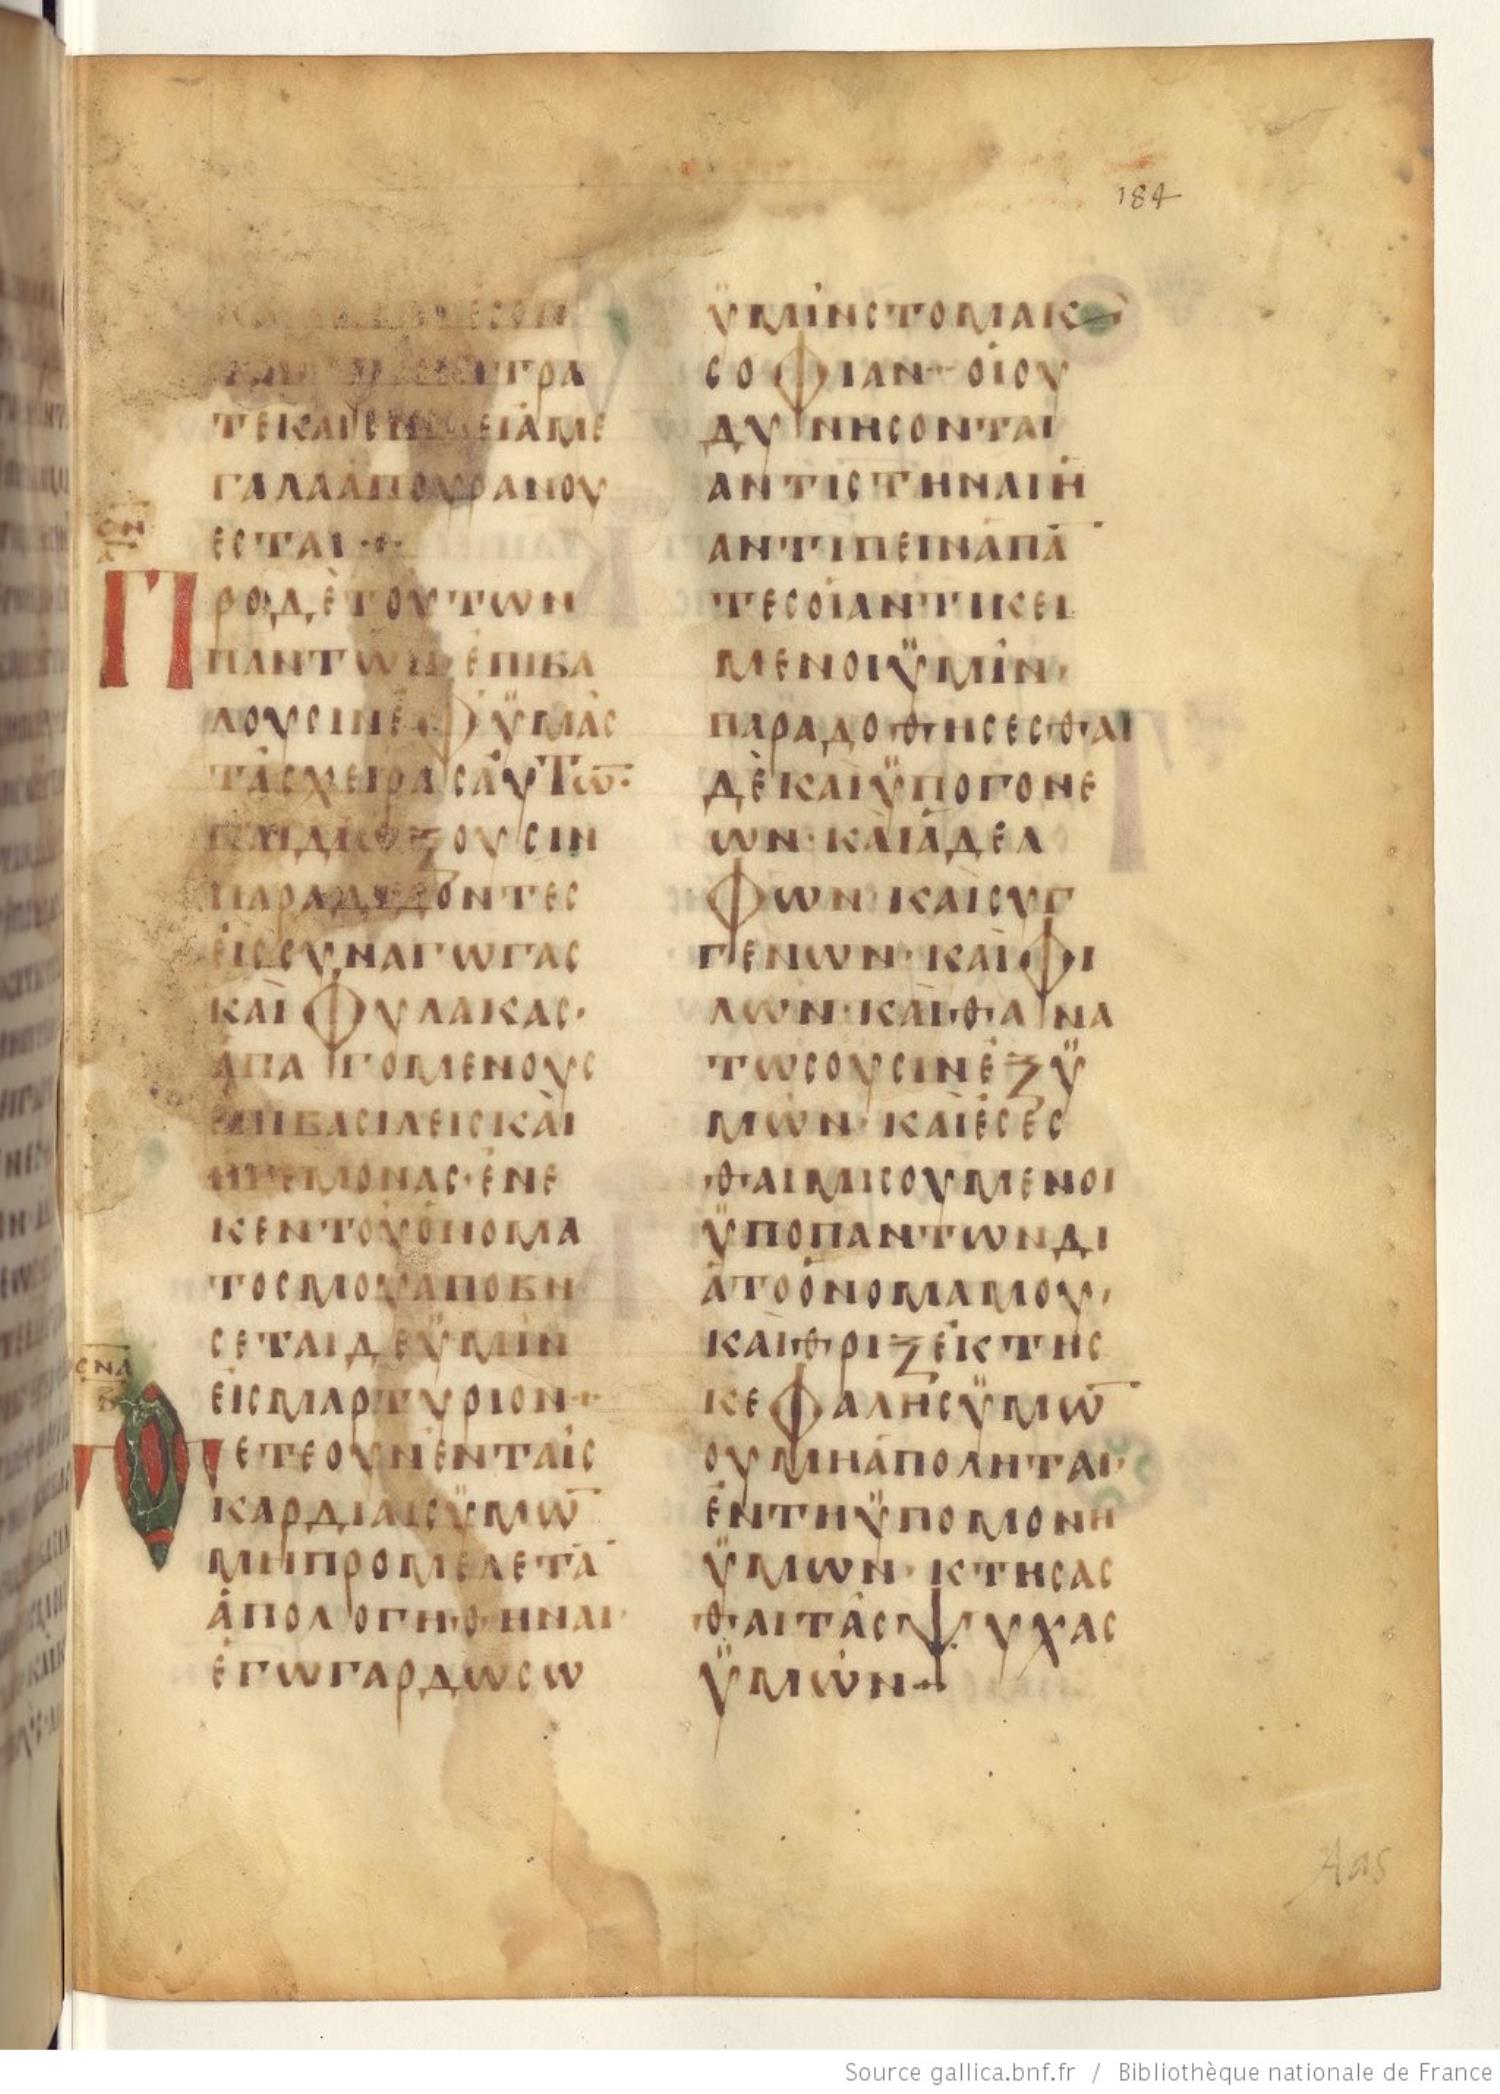 184
ΤΕΚΑΙ
ΓΑΛΑΑΠΟΥΡΑΝΟΥ
ΕСΤΑΙ
ΠΡΟΔΕΤΟΥΤΩΝ
ΠΑΝΤΩΝΕΠΙΒΑ
ΛΟΥСΙΝΕΦΫΜΑС
ΤΑСΧΕΙΡΑСΑΥΤΩ̅·
ΚΑΙΔΙΩΞΟΥСΙΝ
ΠΑΡΑΔΙΔΟΝΤΕС
ΕΙССΥΝΑΓΩΓΑС
ΚΑΙΦΥΛΑΚΑС·
ΑΠΑΓΟΜΕΝΟΥС
ΕΠΙΒΑСΙΛΕΙСΚΑΙ
ΗΓΕΜΟΝΑС·ΕΝΕ
ΚΕΝΤΟΥΟΝΟΜΑ
ΤΟСΜΟΥΑΠΟΒΗ
СΕΤΑΙΔΕΫΜΙΝ
ΕΙСΜΑΡΤΥΡΙΟΝ
ΘΕΤΕΟΥΝΕΝΤΑΙС
ΚΑΡΔΙΑΙСΫΜΩ̅
ΜΗΠΡΟΜΕΛΕΤΑ̅
ΑΠΟΛΟΓΗΘΗΝΑΙ·
ΕΓΩΓΑΡΔΩСΩ
ΫΜΙΝСΤΟΜΑΚΑΙ
СΟΦΙΑΝ·ΟΙΟΥ
ΔΥΝΗСΟΝΤΑΙ
ΑΝΤΙСΤΗΝΑΙΗ
ΑΝΤΙΠΕΙΝΑΠΑ̅
ΤΕСΟΙΑΝΤΙΚΕΙ
ΜΕΝΟΙΫΜΙΝ·
ΠΑΡΑΔΟΘΗСΕСΘΑΙ
ΔΕΚΑΙΫΠΟΓΟΝΕ
ΩΝ·ΚΑΙΑΔΕΛ
ΦΩΝ·ΚΑΙСΥΓ
ΓΕΝΩΝ·ΚΑΙΦΙ
ΛΩΝ·ΚΑΙΘΑΝΑ
ΤΩСΟΥСΙΝΕΞΫ
ΜΩΝ·ΚΑΙΕСΕС
ΘΑΙΜΙСΟΥΜΕΝΟΙ
ΫΠΟΠΑΝΤΩΝΔΙ
ΑΤΟΟΝΟΜΑΜΟΥ·
ΚΑΙΘΡΙΞΕΚΤΗС
ΚΕΦΑΛΗСΫΜΩ̅
ΟΥΜΗΑΠΟΛΗΤΑΙ·
ΕΝΤΗΫΠΟΜΟΝΗ
ΫΜΩΝ·ΚΤΗСΑС
ΘΑΙΤΑСΨΥΧΑС
ΫΜΩΝ
Source gallica.bnf.fr / Bibliothèque nationale de France